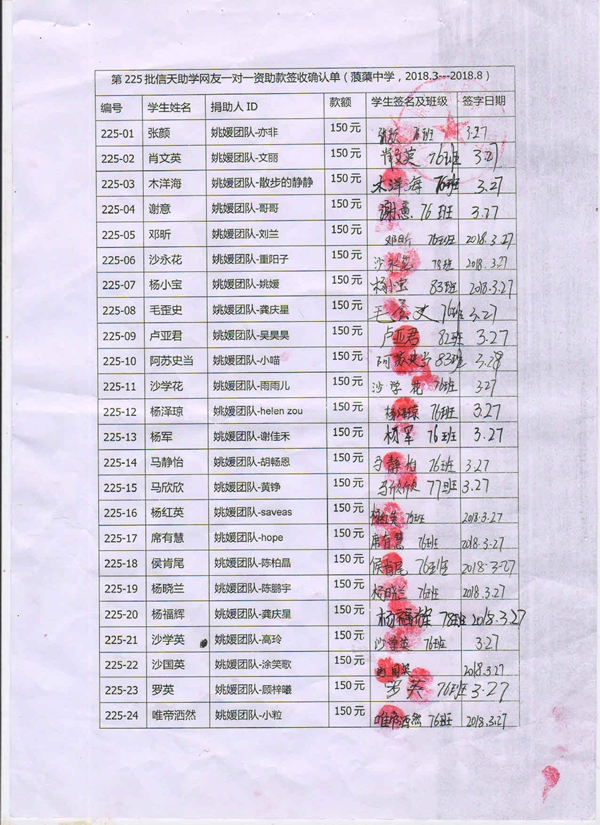 第225批信天助学网友一对一资助款签收确认单（蒗蕖中学，2018.3---2018.8）
编号 学生姓名 捐助人ID 款额 学生签名及班级 签字日期
225-01 张颜 姚媛团队-亦非 150元 张颜 76班 3.27
225-02 肖文英 姚媛团队-文丽 150元 肖文英 76班 3.27
225-03 木洋海 姚媛团队-散步的静静 150元 木洋海 76班 3.27
225-04 谢意 姚媛团队-哥哥 150元 谢意 76班 3.27
225-05 邓昕 姚媛团队-刘兰 150元 邓昕 76班 2018.3.27
225-06 沙永花 姚媛团队-重阳子 150元 沙永花 78班 2018.3.27
225-07 杨小宝 姚媛团队-姚媛 150元 杨小宝 83班 2018.3.27
225-08 毛歪史 姚媛团队-龚庆星 150元 毛歪史 76班 3.27
225-09 卢亚君 姚媛团队-吴昊昊 150元 卢亚君 82班 3.27
225-10 阿苏史当 姚媛团队-小喵 150元 阿苏史当 83班 3.28
225-11 沙学花 姚媛团队-雨雨儿 150元 沙学花 76班 3.27
225-12 杨泽琼 姚媛团队-helen zou 150元 杨泽琼 76班 3.27
225-13 杨军 姚媛团队-谢佳禾 150元 杨军 76班 3.27
225-14 马静怡 姚媛团队-胡畅恩 150元 马静怡 76班 3.27
225-15 马欣欣 姚媛团队-黄铮 150元 马欣欣 77班 3.27
225-16 杨红英 姚媛团队-saveas 150元 杨红英 76班 2018.3.27
225-17 席有慧 姚媛团队-hope 150元 席有慧 76班 2018.3.27
225-18 侯肯尾 姚媛团队-陈柏晶 150元 侯肯尾 76班 2018.3.27
225-19 杨晓兰 姚媛团队-陈鹂宇 150元 杨晓兰 76班 2018.3.27
225-20 杨福辉 姚媛团队-龚庆星 150元 杨福辉 78班 2018.3.27
225-21 沙学英 姚媛团队-高玲 150元 沙学英 76班 3.27
225-22 沙国英 姚媛团队-涂笑歌 150元 沙国英 2018.3.27
225-23 罗英 姚媛团队-顾梓曦 150元 罗英 76班 3.27
225-24 唯帝洒然 姚媛团队-小粒 150元 唯帝洒然 76班 2018.3.27